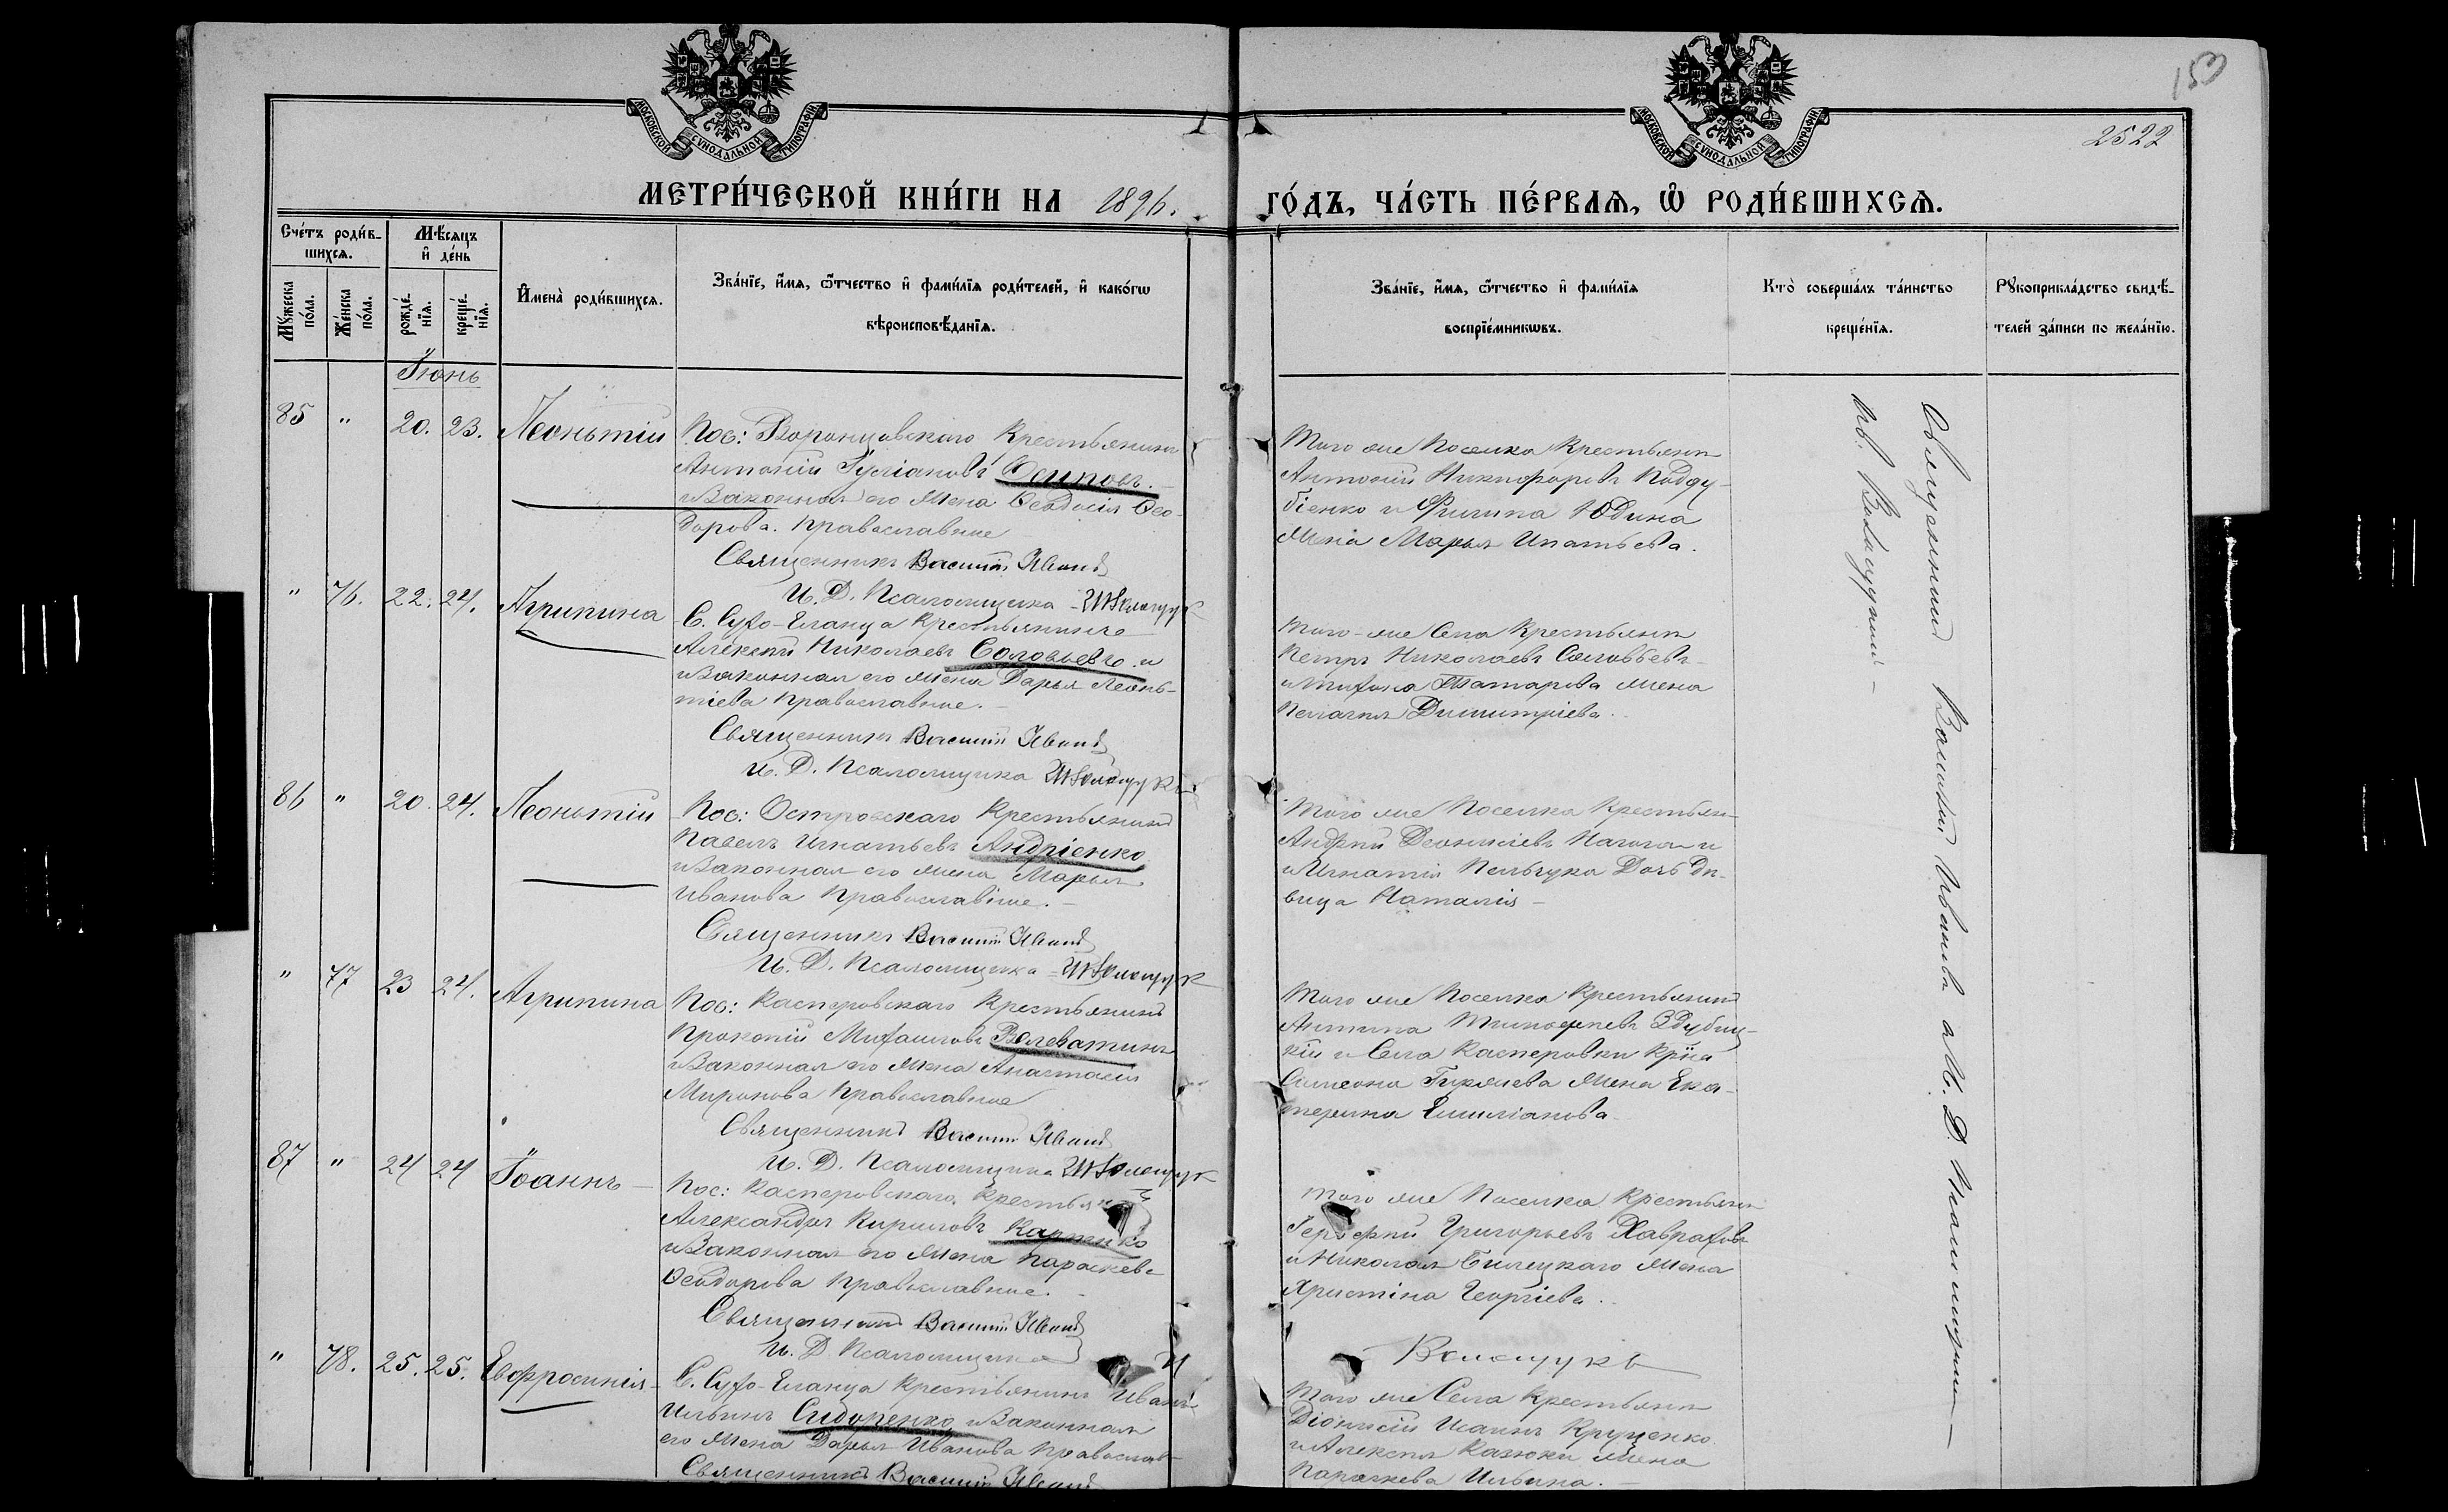 153
2522
МОСКОВСКОЙ СѴНОДАЛЬНОЙ ТИПОГРАФІИ
МОСКОВСКОЙ СѴНОДАЛЬНОЙ ТИПОГРАФІИ
МЕТРИ́ЧЕСКОЙ КНИ́ГИ НА 1896.
ГО́ДЪ, ЧА́СТЬ ПЕ́РВАѦ, Ѡ҆ РОДИ́ВШИХСѦ.
Сче́тъ роди́в-
шихсѧ.
Мꙋ́жеска по́ла.
Же́нска по́ла.
Мѣ́сѧцъ
и҆ де́нь
рожде́-
нїѧ.
креще́-
нїѧ.
И҆мена̀ роди́вшихсѧ.
Зва́нїе, и҆́мѧ, ѻ҆́тчество и҆ фами́лїѧ роди́телей, и҆ како́гѡ
вѣроисповѣ́данїѧ.
Зва́нїе, и҆́мѧ, ѻ҆́тчество и҆ фами́лїѧ
воспрїе́мникѡвъ.
Кто̀ соверша́лъ та́инство
креще́нїѧ.
Рꙋкоприкла́дство свидѣ́-
телей за́писи по жела́нїю.
Іюнь
85 " 20. 23. Леонтій
Пос: Воронцовскаго Крестьянинъ
Антоній Іуліановъ Осиповъ.
и законная его жена Ѳеодосія Ѳео-
дорова. православные
Священникъ Василій Ивановъ
И. Д. Псаломщика Волощукъ
Того же Поселка Крестьянинъ
Антоній Никифоровъ Подду-
біенко и Филипа Юдина
жена Марья Игнатьева.
" 76. 22. 24. Агрипина
С. Сухо-Еланца Крестьянинъ
Алексѣй Николаевъ Соловьевъ и
законная его жена Дарья Леонь-
тіева православные.
Священникъ Василій Ивановъ
И. Д. Псаломщика Волощукъ
Того-же Села Крестьянинъ
Петръ Николаевъ Соловьевъ
и Тихона Татарова жена
Пелагія Димитріева.
86 " 20. 24. Леонтій
Пос: Островскаго Крестьянинъ
Павелъ Игнатьевъ Андріенко
и законная его жена Марья
Иванова православные.
Священникъ Василій Ивановъ
И. Д. Псаломщика Волощукъ
Того же Поселка Крестьян-
Андрей
и Игнатія Пельчука дочь дѣ-
вица Наталія
" 77 23 24. Агрипина
Пос: Касперовскаго Крестьянинъ
Прокопій Михаиловъ Волеватинъ
и законная его жена Анастасія
Миронова православные
Священникъ Василій Ивановъ
И. Д. Псаломщика Волощукъ
Того же Поселка Крестьянинъ
Антипа Тимофеевъ Здубиц-
кій и Села Касперовки
Симеона жена Ека-
терина Емиліанова
87 " 24 24 Іоаннъ
Пос: Касперовскаго Крестьян
Александръ Кириловъ
и законная его жена Параскева
Ѳеодорова православные.
Священникъ Василій Ивановъ
И. Д. Псаломщика
Волощукъ
Того же Поселка Крестьянинъ
Григорьевъ
и Николая Билецкаго жена
Христина Георгіева.
" 78. 25. 25. Евфросинія
С. Сухо-Еланца Крестьянинъ Иванъ
Ильинъ Сидоренко и законная
его жена Дарья Иванова православ
Священникъ Василій Ивановъ
Того же Села Крестьянинъ
Діонисій Исаинъ Круценко
и Алексея Казюки жена
Параскева Ильина.
Священникъ Василій Ивановъ и И. Д. Псаломщика
Ив. Волощукъ